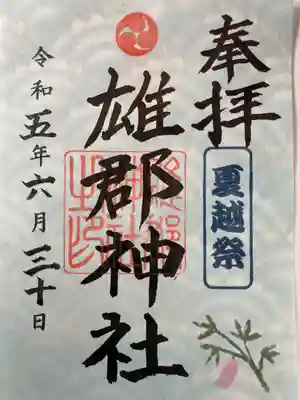 奉拝
夏越祭
雄郡神社
令和五年六月三十日